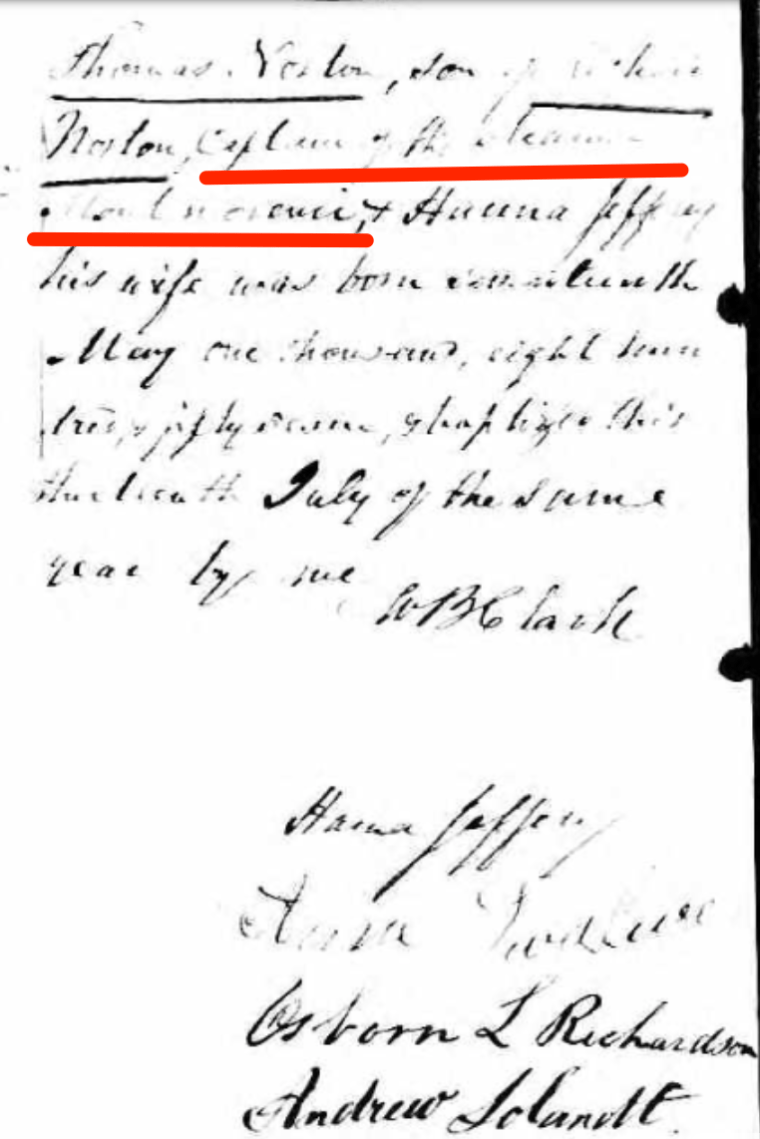 Thomas Norton, son of
Norton, Captain of the Steamer
& Hanna Jeffrey
his wife was born seventeenth
May one thousand, eight hun
dred, & fifty seven, & baptized this
thirteenth July of the same
year by me
W B Clark
Hanna Jeffery
Osborn L Richardson
Andrew